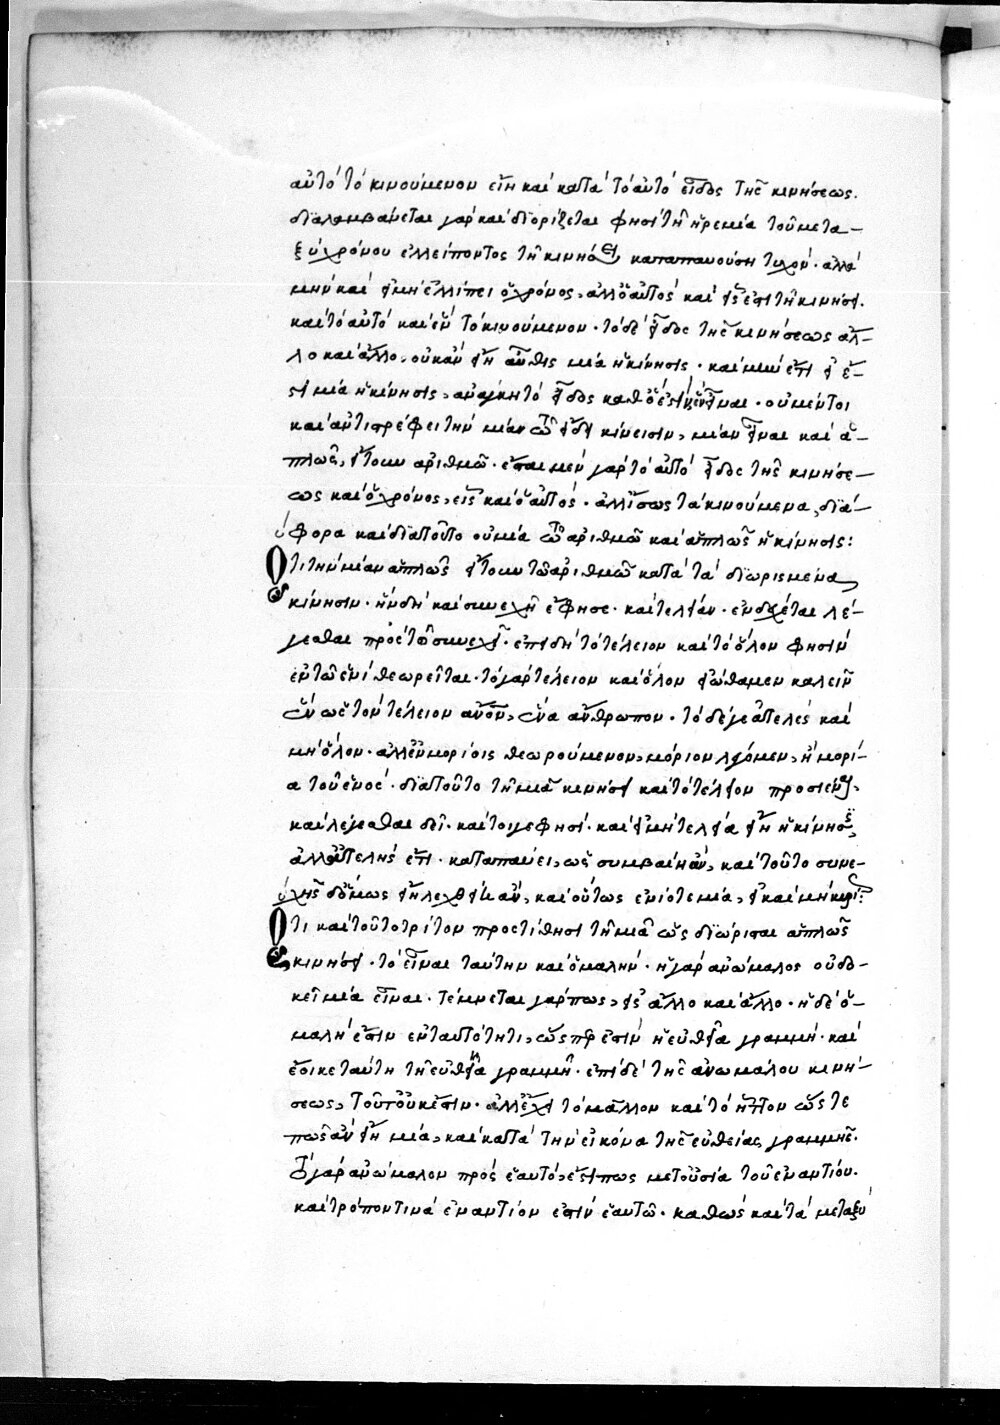 αὐτὸ τὸ κινούμενον εἴη καὶ κατὰ τὸ αὐτὸ εἶδος τῆς κινήσεως.
διαλαμβάνεται γὰρ καὶ διορίζεται φησὶ τῇ ἠρεμία τοῦ μετα-
ξὺ χρόνου ἐλλείποντος τῇ κινήσει καταπαυούση τυχόν. ἀλλὰ
μὴν καὶ εἰ μὴ ἐλλίπει ὁ χρόνος, ἀλλ' ὁ αὐτὸς καὶ εἷς ἐπὶ τῇ κινήσει.
καὶ τὸ αὐτὸ καὶ ἓν τὸ κινούμενον. τὸ δὲ εἶδος τῆς κινήσεως ἄλ-
λο καὶ ἄλλο, οὐκ ἂν εἴη αὖθις μία ἡ κίνησις. καὶ μὴν ἔτι εἰ ἔ-
στι μία ἡ κίνησις, ἀνάγκη τὸ εἶδος καθ' ὅ ἐστιν ἓν εἶναι. οὐ μέντοι
καὶ ἀντιστρέφει τὴν μίαν τῶ εἴδει κίνεισιν, μίαν εἶναι καὶ ἁ-
πλῶς, εἴτουν ἀριθμῶ. ἔσται μὲν γὰρ τὸ αὐτὸ εἶδος τῆς κινήσε-
ως καὶ ὁ χρόνος, εἷς καὶ ὁ αὐτός. ἀλλ' ἴσως τὰ κινούμενα, διά-
φορα καὶ διατοῦτο οὐ μία τῶ ἀριθμῶ καὶ ἁπλῶς ἡ κίνησις:
Ὅτι τὴν μίαν ἁπλῶς εἴτουν τῶ ἀριθμῶ κατὰ τὰ διωρισμένα
κίνησιν. ἤνδη καὶ συνεχῆ ἔφησε. καὶ τελείαν. ἐνδέχεται λέ-
γεσθαι πρὸς τῶ συνεχεῖ. ἐπιδὴ τὸ τέλειον καὶ τὸ ὅλον φησὶν
ἐν τῶ ἑνὶ θεωρεῖται. τὸ γὰρ τέλειον καὶ ὅλον εἰώθαμεν καλεῖν
ἓν ὡς τὸν τέλειον ἄνον, ἕνα ἄνθρωπον. τὸ δέ γε ἀτελὲς καὶ
μὴ ὅλον. ἀλλ' ἐν μορίοις θεωρούμενον, μόριον λέγομεν, ἢ μόρι-
α τοῦ ἑνός. διατοῦτο τῇ μιᾶ κινήσει καὶ τὸ τέλειον προσιέναι,
καὶ λέγεσθαι δεῖ. καίτοιγε φησί. καὶ εἰ μὴ τελεία εἴη ἡ κίνησις,
ἀλλ' ἀτελής ἔτι. καταπαύει, ὡς συμβαίη ἄν, καὶ τοῦτο συνε-
χὴς δ' ὅμως εἴη λεχθείη ἂν, καὶ οὕτως ἐνίοτε μία, εἰ καὶ μὴ κυρί:
Ὅτι καὶ τοῦτο τρίτον προστίθησι τῇ μιᾶ ὡς διώρισται ἁπλῶς
κινήσει. τὸ εἶναι ταύτην καὶ ὁμαλήν. ἡ γὰρ ἀνώμαλος οὐ δο-
κεῖ μία εἶναι. τέμνεται γάρ πως, εἰς ἄλλο καὶ ἄλλο. ἡ δὲ ὁ-
μαλή ἐστιν ἐν ταυτότητι, ὥσπερ ἐστὶν ἡ εὐθεῖα γραμμή. καὶ
ἔοικε ταύτη τῇ εὐθεία γραμμῆ. ἐπὶ δὲ τῆς ἀνωμάλου κινή-
σεως, τοῦτ' οὐκ ἔστιν. ἀλλ' ἔχει τὸ μᾶλλον καὶ τὸ ἧττον ὥστε
πῶς ἂν εἴη μία, καὶ κατὰ τὴν εἰκόνα τῆς εὐθείας γραμμῆς.
τὸ γὰρ ἀνώμαλον πρὸς ἑαυτό, ἐστί πως μετουσία τοῦ ἐναντίου.
καὶ τρόπον τινὰ ἐναντίον ἐστὶν ἑαυτῶ. καθὼς καὶ τὰ μεταξὺ